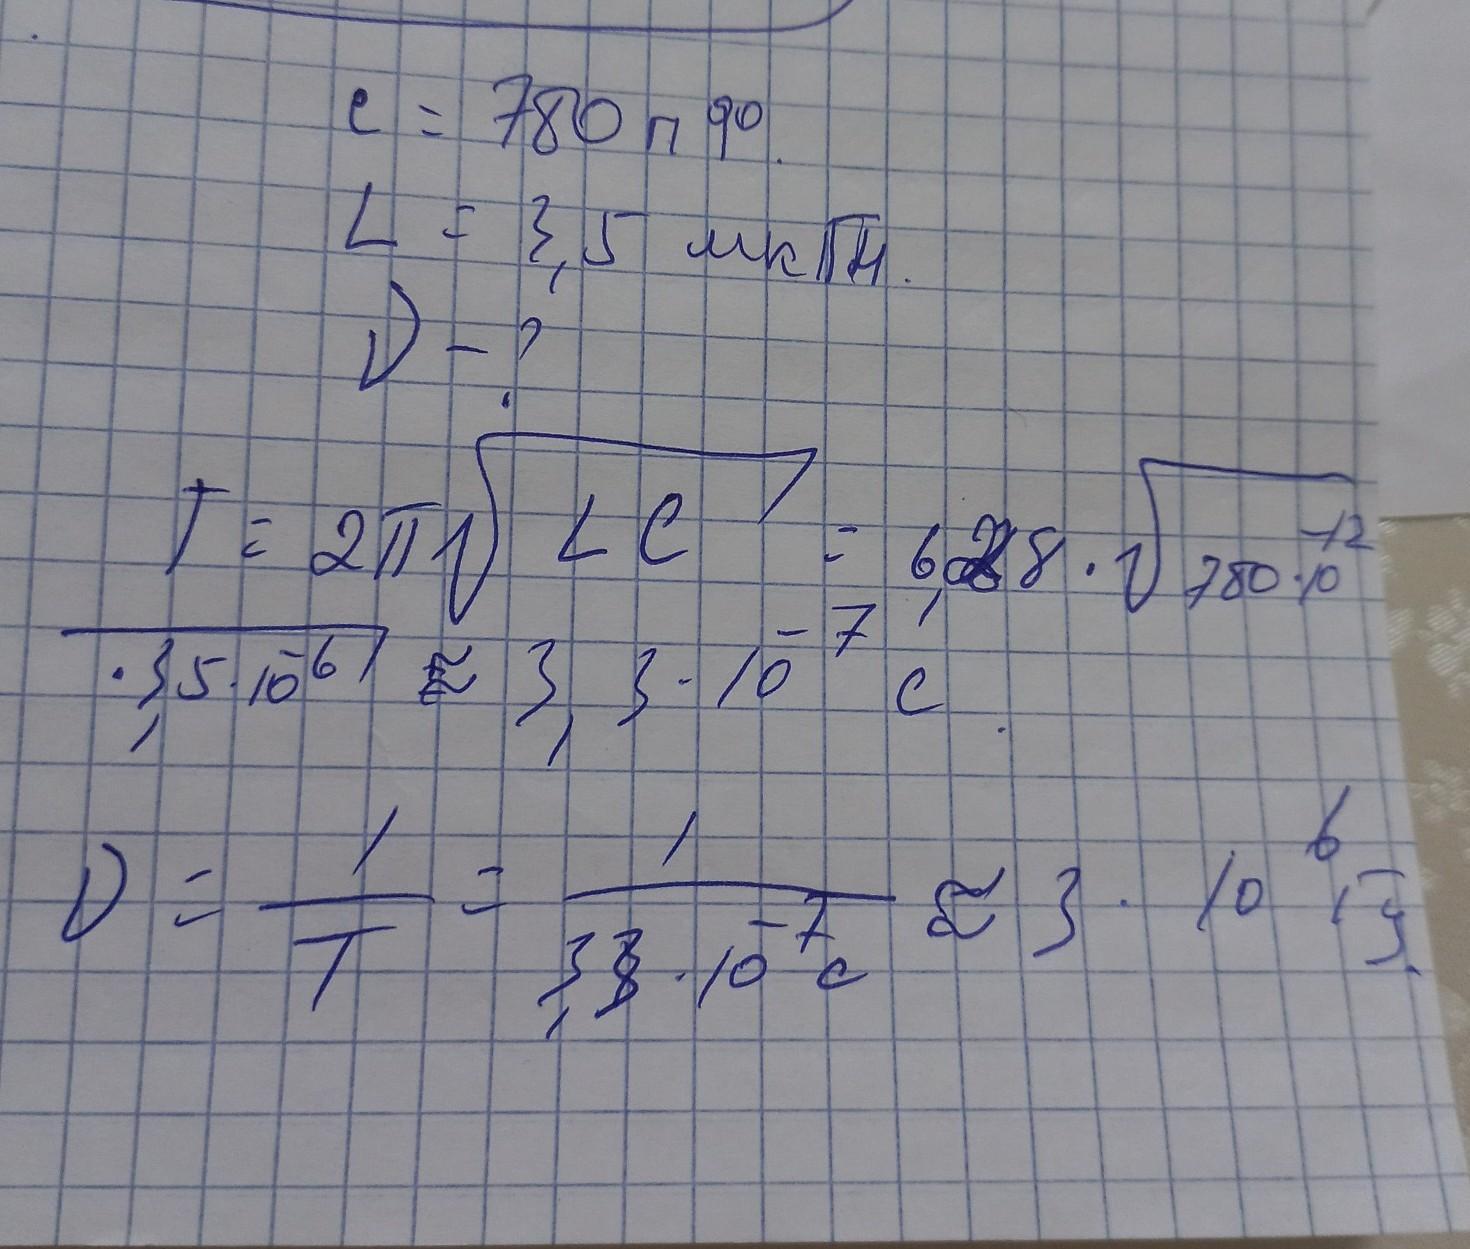 C = 780 пФ.
L = 3,5 мкГн.
ν - ?
T = 2π√LC = 6,28 · √780·10⁻¹²
·3,5·10⁻⁶ ≈ 3,3·10⁻⁷ c.
ν = 1/T = 1/3,3·10⁻⁷c ≈ 3 · 10⁶ Гц.